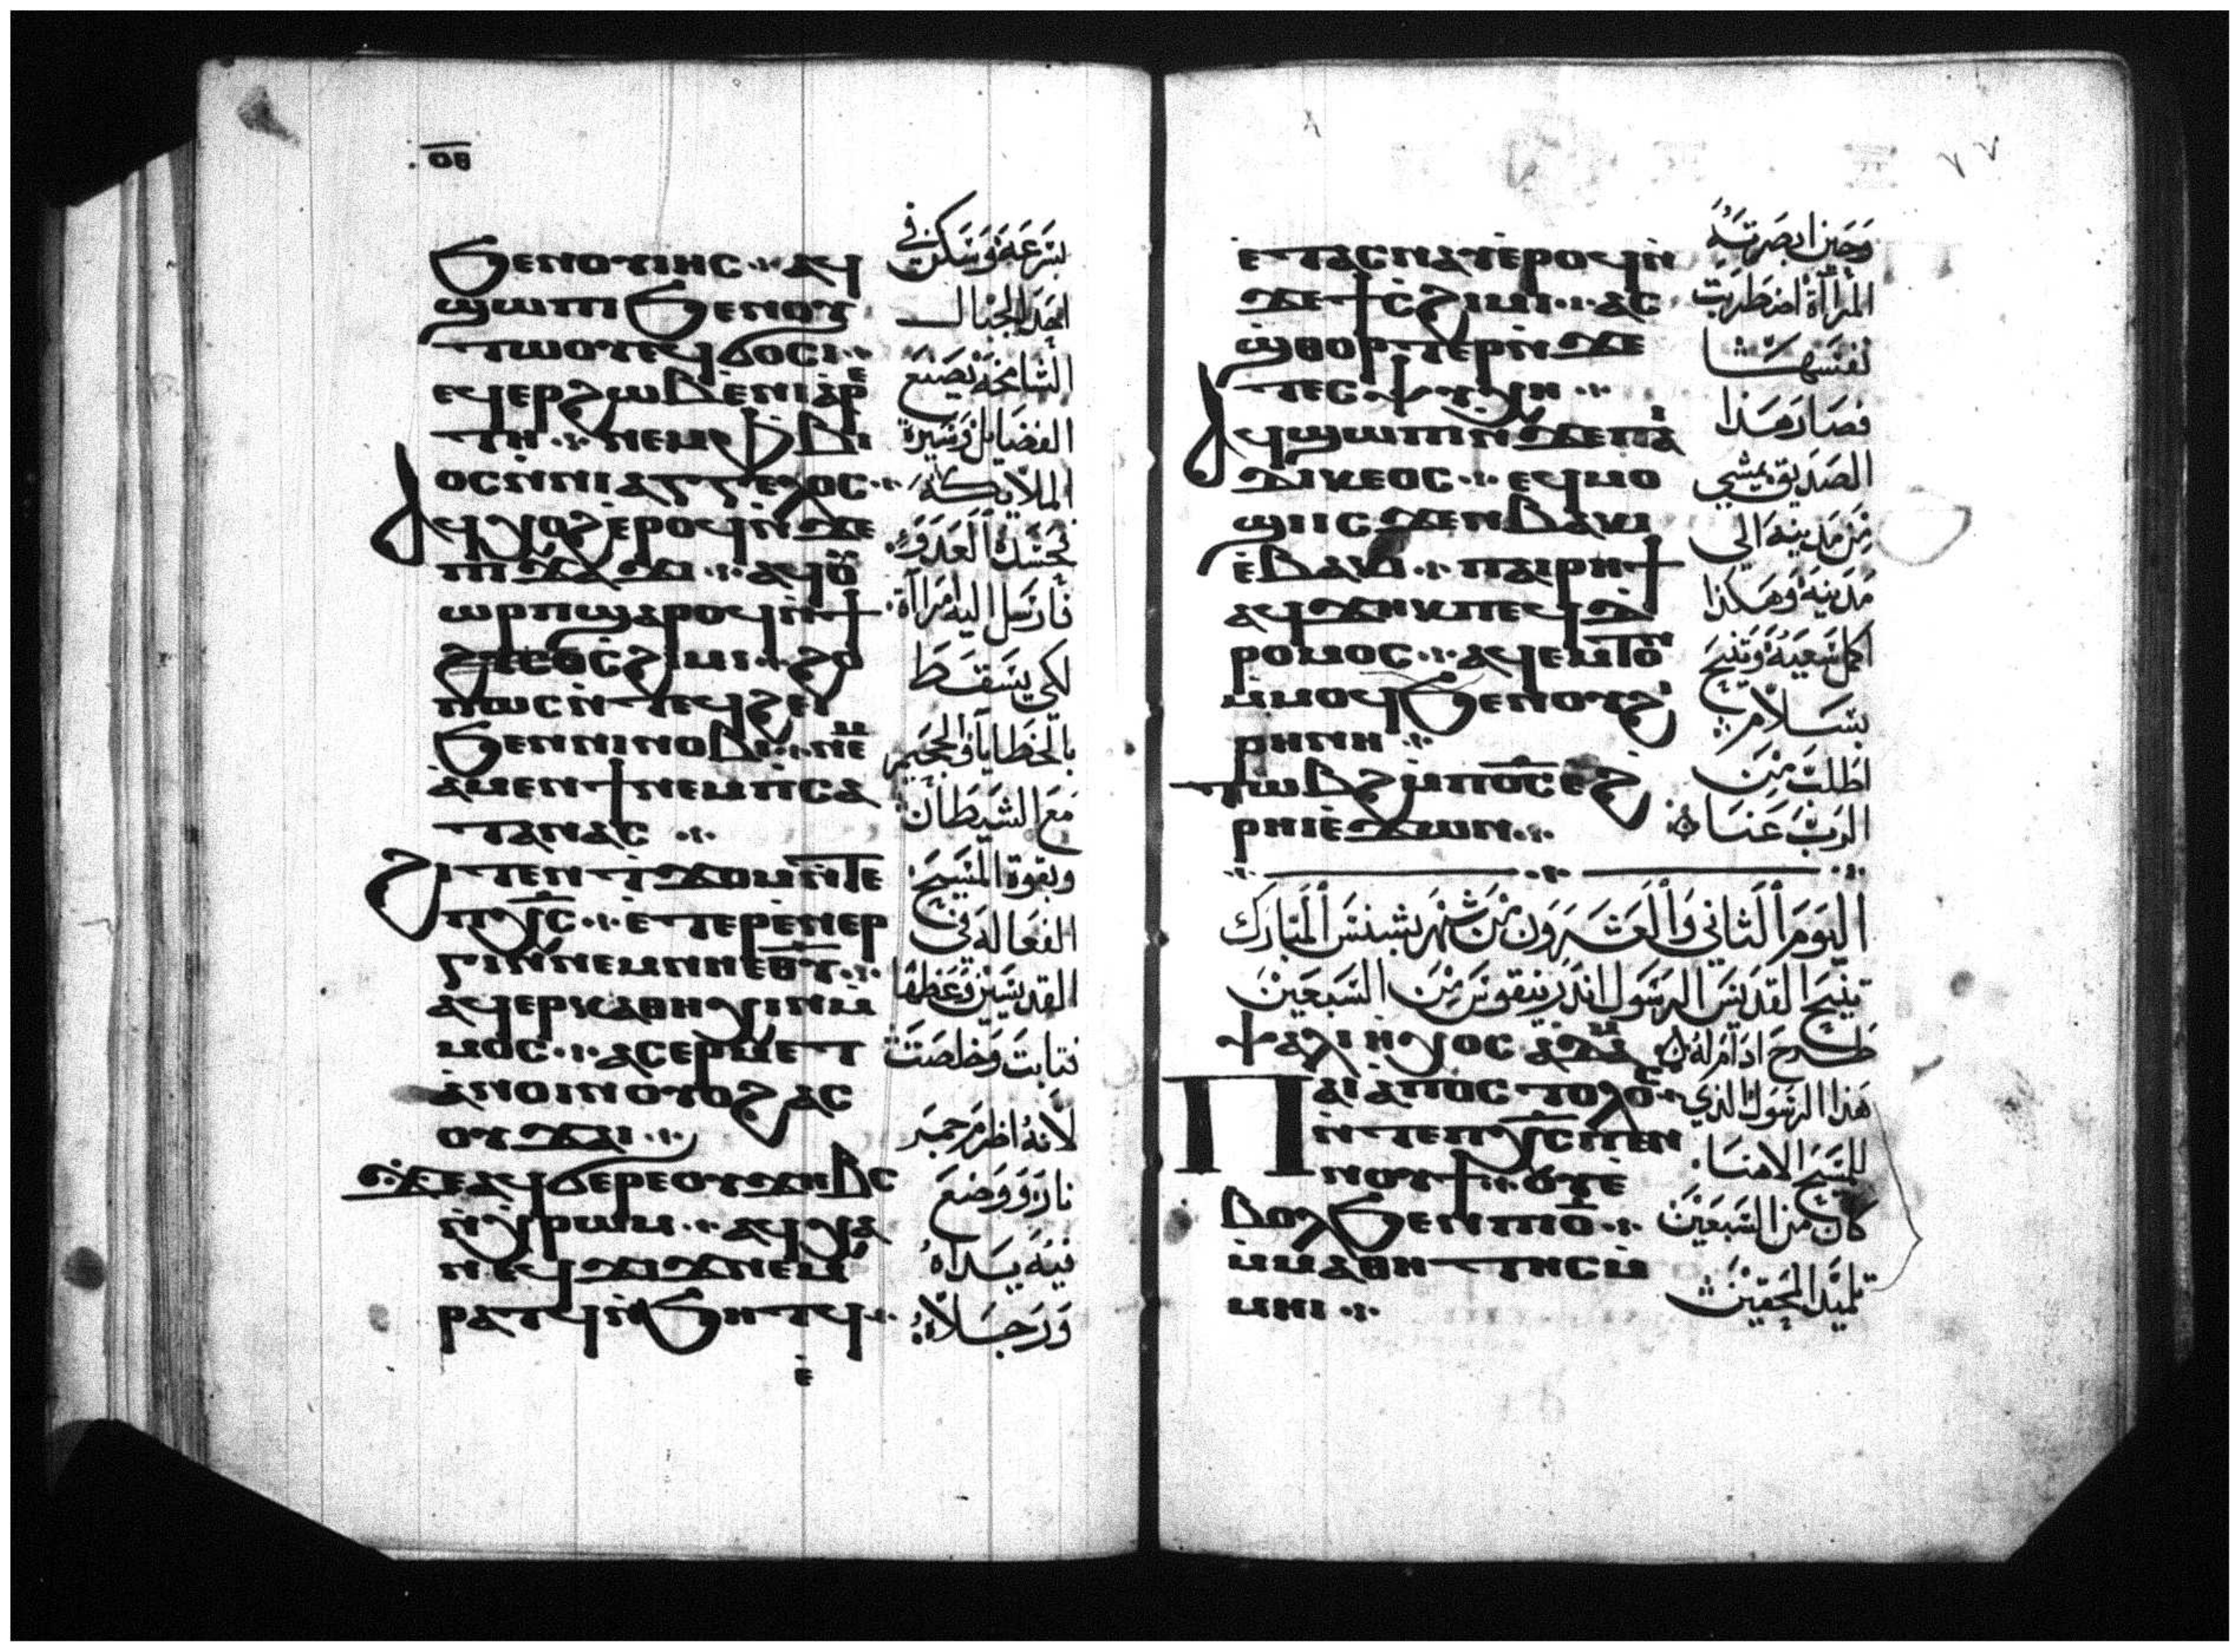 ⲟⲑ
ϧⲉⲛⲟⲩⲓⲏⲥ ⲁϥ
ϣⲱⲡⲓ ϧⲉⲛⲟⲩ
ⲧⲱⲟⲩ ⲉϥϭⲟⲥⲓ
ⲉϥⲉⲣϩⲱⲃ ⲉⲛⲓⲁⲣⲉ
ⲧⲏ ⲛⲉⲙⲡⲃⲓ
ⲟⲥ ⲛ̀ⲛⲓⲁⲅⲅⲉⲗⲟⲥ
ⲁϥⲭⲟϩ ⲉ̀ⲣⲟϥ ⲛ̀ϫⲉ
ⲡⲓϫⲁϫⲓ ⲁϥⲟⲩ
ⲱⲣⲡ ϣⲁⲣⲟϥ ⲛ̀ϯ
ⲥϩⲓⲙⲓ ϩⲟ
ⲡⲱⲥ ⲛ̀ⲧⲉϥϩⲉⲓ
ϧⲉⲛⲛⲓⲛⲟⲃⲓ ⲛⲉⲙ
ⲁⲙⲉⲛϯ ⲛⲉⲙⲡⲥⲁ
ⲧⲁⲛⲁⲥ
ϩⲓⲧⲉⲛ ϯϫⲟⲙ ⲛ̀ⲧⲉ
ⲡⲭ̅ⲥ̅ ⲉⲧⲉⲣⲉⲛⲉⲣ
ⲅⲓⲛ ⲛⲉⲙⲛⲏⲉⲑⲩ
ⲁϥⲉⲣⲕⲁⲑⲏⲭⲓⲛ ⲙ̀
ⲙⲟⲥ ⲁⲥⲉⲣⲙⲉⲧ
ⲁⲛⲟⲓⲛ ⲟⲩⲟϩ ⲁⲥ
ⲟⲩϫⲁⲓ
ϫⲉ ⲁϥϭⲉⲣⲉ ⲟⲩϫⲏⲃⲥ
ⲛ̀ⲭⲣⲱⲙ ⲁϥⲭⲁ
ⲛⲉϥϫⲓϫ ⲛⲉⲙ
ⲣⲁⲧϥ ⲛ̀ϧⲏⲧϥ
ⲉ̀
بسرعة وسكن في
احد الجبال
الشامخة يصنع
الفضايل وسيرة
الملايكة
فحسده العدو
فارسل اليه امراة
لكي يسقط
بالخطايا في الجحيم
مع الشيطان
وبقوة المسيح
الفعالة في
القديسين وعظها
فتابت وخلصت
لانه اضرم جمر
نار ووضع
فيه يداه
ورجلاه
٧٧
ⲉⲧⲁⲥⲛⲁⲩ ⲉ̀ⲣⲟϥ ⲛ̀
ϫⲉ ϯⲥϩⲓⲙⲓ ⲁⲥ
ϣⲑⲟⲣⲧⲉⲣ ⲛ̀ϫⲉ
ⲧⲉⲥⲯⲩⲭⲏ
ⲁϥϣⲱⲡⲓ ⲛ̀ϫⲉ ⲡⲓ
ⲇⲓⲕⲉⲟⲥ ⲉϥⲙⲟ
ϣⲓ ⲓⲥϫⲉⲛ ⲃⲁⲕⲓ
ⲉ̀ⲃⲁⲕⲓ ⲡⲁⲓⲣⲏϯ
ⲁϥϫⲏⲕ ⲡⲉϥⲇ
ⲣⲟⲙⲟⲥ ⲁϥⲉⲙⲧⲟⲛ
ⲙ̀ⲙⲟϥ ϧⲉⲛⲟⲩϩⲓ
ⲣⲏⲛⲏ
ⲧⲱⲃϩ ⲙ̀ⲡⲟ̅ⲥ̅ ⲉϩ
ⲣⲏⲓ ⲉϫⲱⲛ
وحين ابصرته
المراة اضطربت
نفسها
فصار هذا
الصديق يمشي
من مدينة الى
مدينة وهكذا
اكمل سعيه وتنيح
بسلام
اطلب من
الرب عنا
اليوم الثاني والعشرون من شهر بشنس المبارك
تنيح القديس الرسول اندرنيقوس من السبعين
طرح ادام له
ⲡⲁⲓⲁⲡⲟⲥⲧⲟⲗⲟⲥ
ⲛ̀ⲧⲉ ⲡⲭ̅ⲥ̅ ⲡⲉⲛ
ⲛⲟⲩϯ ⲟⲩⲉ̀
ⲃⲟⲗ ϧⲉⲛ ⲡⲓⲟ̅
ⲙ̀ⲙⲁⲑⲏⲧⲏⲥ ⲙ̀
ⲙⲏⲓ
هذا الرسول الذي
للمسيح الاهنا
كان من السبعين
تلميذ المحقين